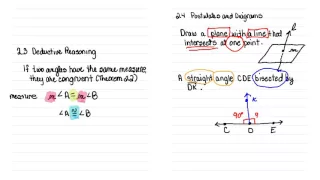 2.3 Deductive Reasoning
If two angles have the same measure,
they are congruent (Theorem 2.2)
measure: m∠A = m∠B
∠A ≅ ∠B
2.4 Postulates and Diagrams
Draw a plane with a line that
intersects at one point.
m
A straight angle CDE bisected by
DK.
K
90°
C D E